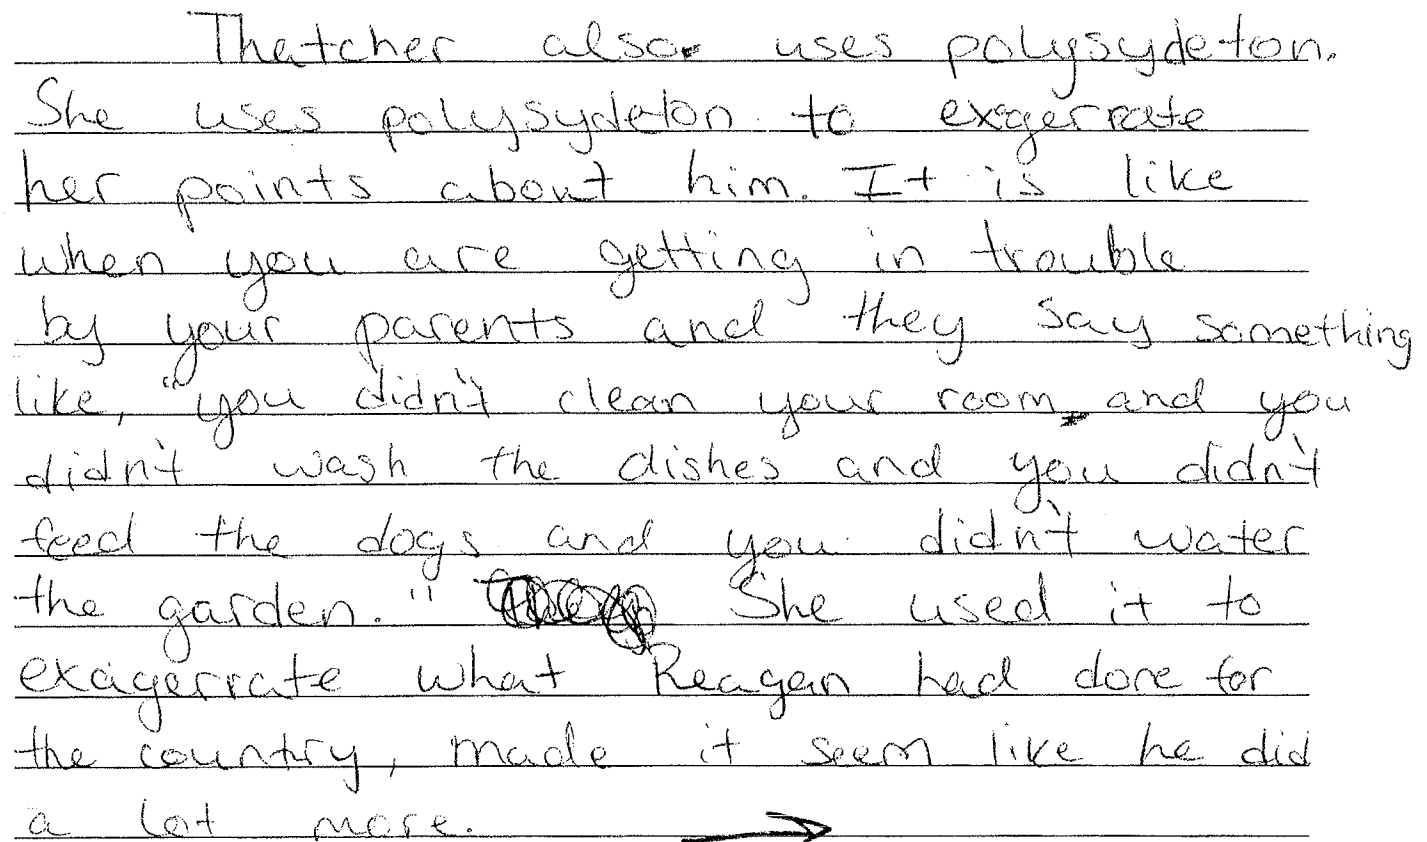 Thatcher also uses polysydeton.
She uses polysydeton to exagerrate
her points about him. It is like
when you are getting in trouble
by your parents and they say something
like, "you didn't clean your room and you
didn't wash the dishes and you didn't
feed the dogs and you didn't water
the garden." She used it to
exagerrate what Reagan had done for
the country, made it seem like he did
a lot more.